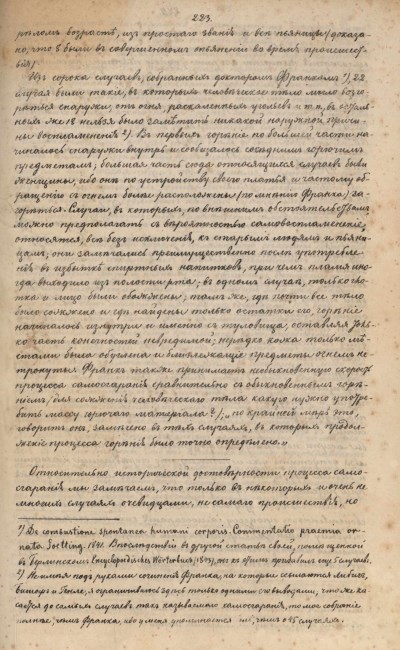 223.
рѣломъ возрастѣ, изъ простаго званія и всѣ пьяницы (доказа-
но, что 8 были въ совершенномъ опьяненіи во время происшес-
твія).
Изъ сорока случаевъ, собранныхъ докторомъ Франкомъ ¹), 22
случая были такіе, въ которыхъ человѣческое тѣло могло возго-
раться снаружи, отъ огня, раскаленныхъ угольевъ и т. п., въ осталь-
ныхъ же 18 нельзя было замѣтить никакой наружной причи-
ны воспламененія ²). Въ первыхъ горѣніе по большей части на-
чиналось снаружи внутрь и сообщалось сосѣднимъ горючимъ
предметамъ; большая часть сюда относящихся случаевъ были
женщины, ибо онѣ по устройству своего платья и частому об-
ращенію съ огнемъ болѣе расположены (по мнѣнію Франка) за-
горѣться. Случаи, въ которыхъ, по внѣшнимъ обстоятельствамъ
можно предполагать съ вѣроятностію самовоспламененіе,
относятся, всѣ безъ исключенія, къ старымъ людямъ и пьяни-
цамъ; они замѣчались преимущественно послѣ употребле-
нія въ избыткѣ спиртныхъ напитковъ, при чемъ пламя ино-
гда выходило изъ полости рта; въ одномъ случаѣ, только
и лицо были обожжены; тамъ же, гдѣ почти все тѣло
было сожжено и гдѣ найдены только остатки его, горѣніе
начиналось изнутри и именно съ туловища, оставляя толь-
ко часть конечностей невредимой; нерѣдко кожа только мѣ-
стами была обуглена и близлежащіе предметы огнемъ не-
тронуты. Франкъ также принимаетъ необыкновенную скорость
процесса самосгаранія сравнительно съ обыкновеннымъ горѣ-
ніемъ (для сожженія человѣческаго тѣла какую нужно употре-
бить массу горючаго матеріала?); „по крайней мѣрѣ это,
говоритъ онъ, замѣчено въ тѣхъ случаяхъ, въ которыхъ продол-
женіе процесса горѣнія было точно опредѣлено.„
Относительно исторической достовѣрности процесса само-
сгаранія мы замѣчаемъ, что только въ нѣкоторыхъ и очень не-
многихъ случаяхъ очевидцами, не самаго происшествія, но
¹) De combustione spontanea humani corporis. Commentatio praemio or-
nata Goetting. 1841. Впослѣдствіи въ другой статьѣ своей, помѣщенной
въ Берлинскомъ Encyclopädisches Wörterbuch (1843), онъ къ этимъ прибавилъ еще 5 случаевъ.
²) Не имѣя подъ руками сочиненія Франка, на которые ссылаются Либихъ,
Бишофъ и Генле, я ограничиваюсь здѣсь только одними его выводами, что же ка-
сается до самыхъ случаевъ такъ называемаго самосгаранія, то мое собраніе
полнѣе, чѣмъ Франка, ибо у меня упоминается не, чѣмъ о 45 случаяхъ.